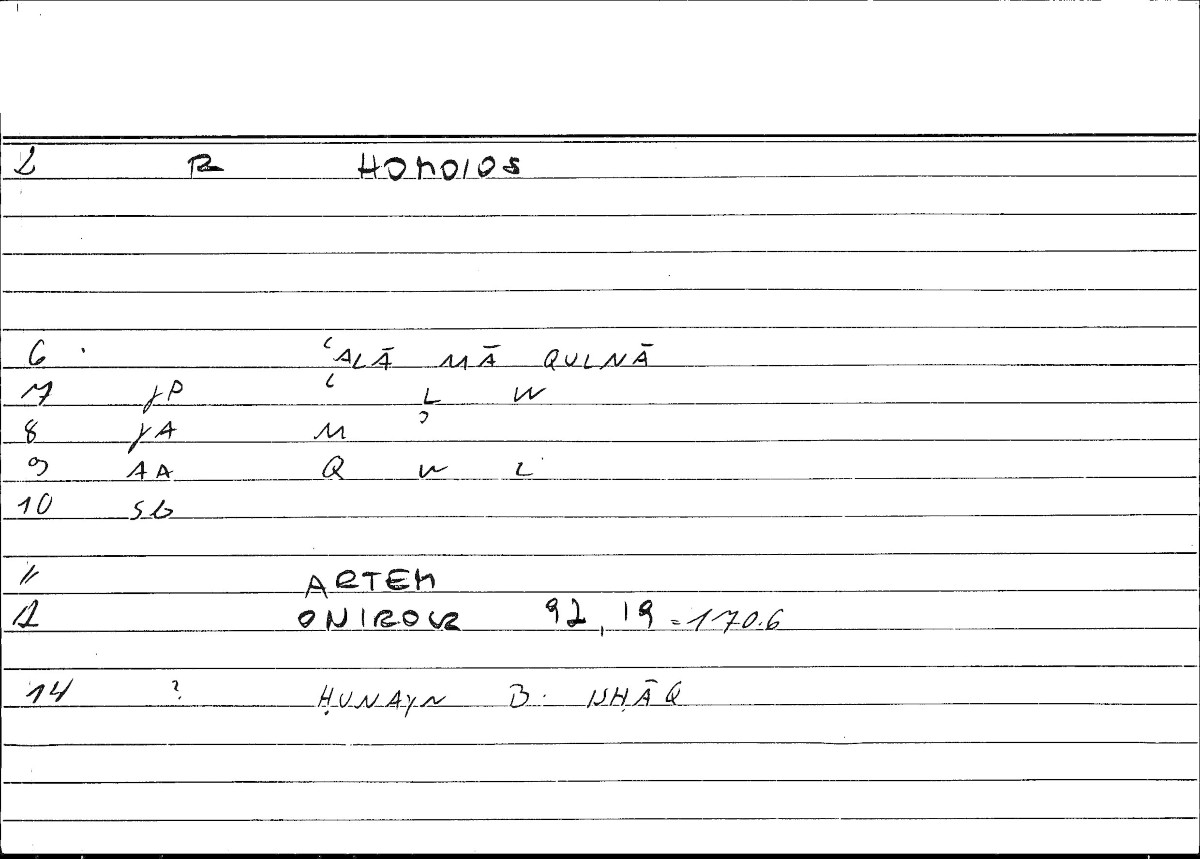 2 R HOMOIOS
6 ʿALĀ MĀ QULNĀ
7 JP ʿ L W
8 JA M ʾ
9 AA Q W L
10 SB
11 ARTEM
12 ONIROCR 92,19 = 170.6
14 ? ḤUNAYN B. ISḤĀQ